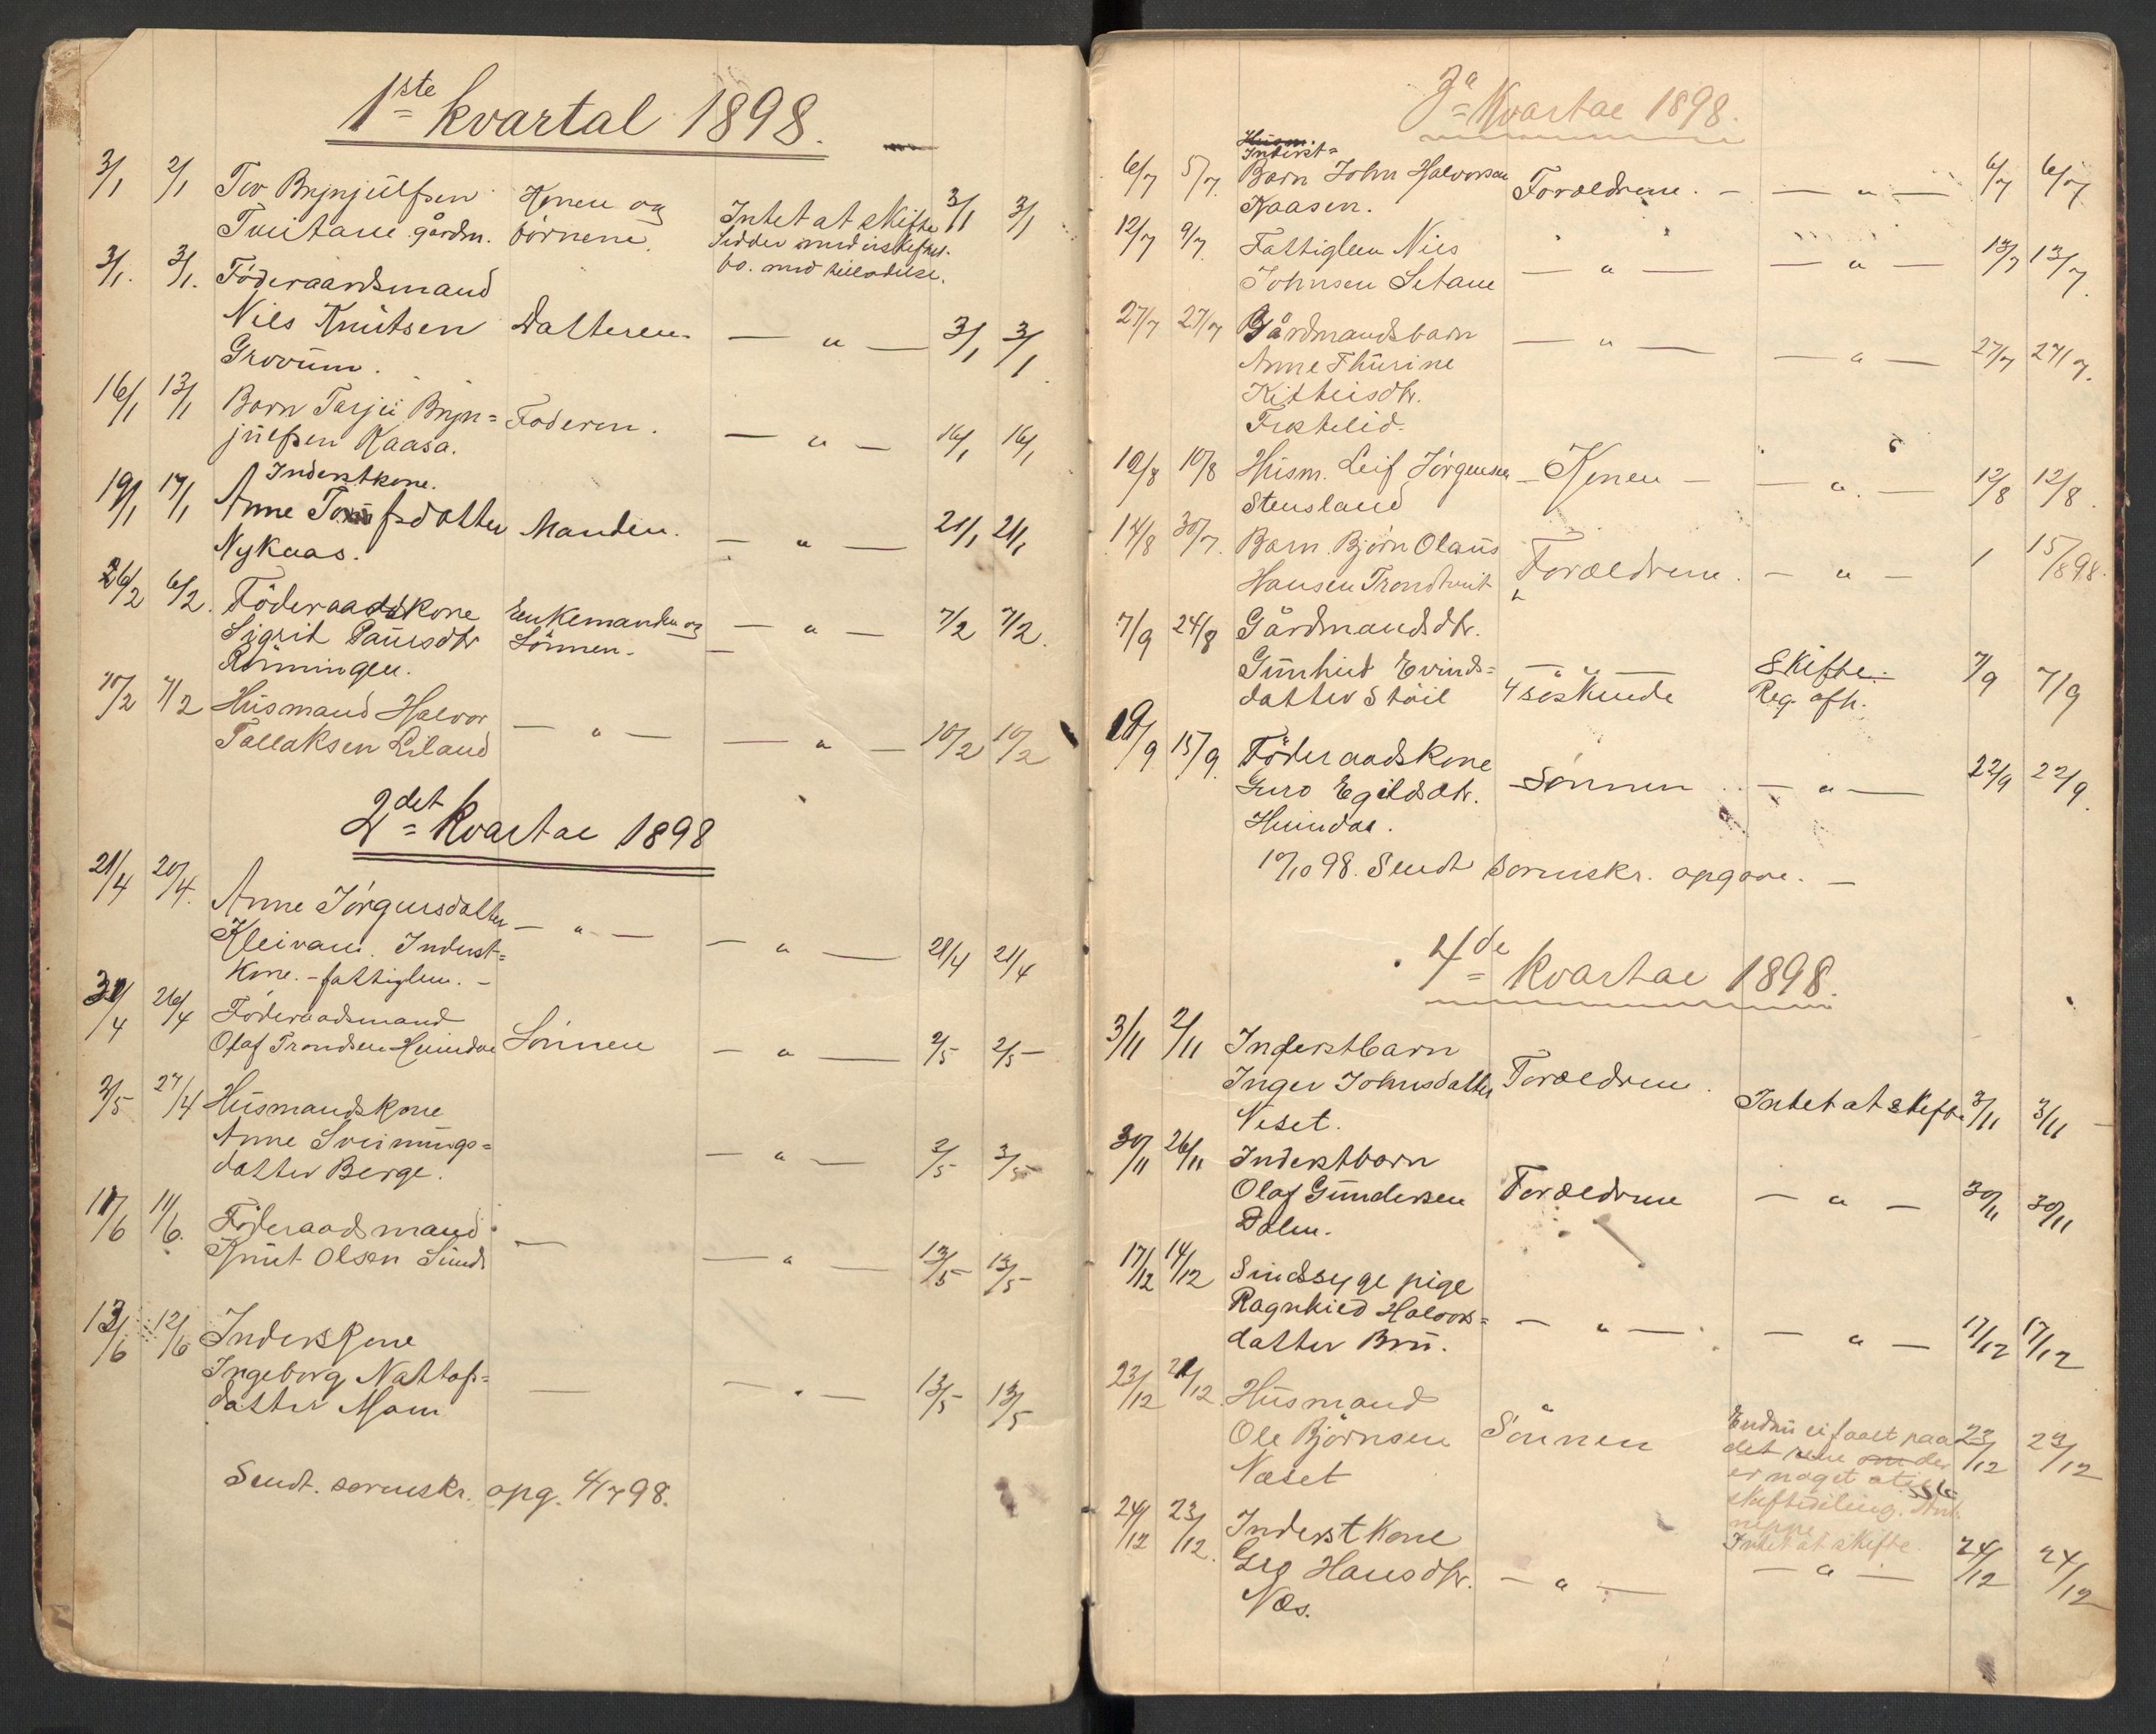 1ste kvartal 1898.
3/1 2/1 Tor Brynjülfsen Konen og
Tveitane gårdm. börnene. Intet at skifte 3/1 3/1
Sidder med uskiftet
bo. med tilladelse.
3/1. 3/1. Föderaadsmand
Niels Knütsen Datteren. — " — 3/1 3/1.
Grovüm.
16/1 13/1 Barn Tarjei Bryn=
jülfsen Kaasa. Faderen. — " — 16/1 16/1
Inderstkone.
19/1 17/1 Anne datter Manden. — " — 21/1 21/1
Nykaas.
26/2 6/2. Föderaadskone Enkemanden og — " — 7/2 7/2.
Sigrid Paulsdtr Sönnen.
Rönningen.
10/2 7/2 Hüsmand Halvor — " — — " — 10/2 10/2
Tallaksen Liland
2det Kvartal 1898
21/4 20/4. Anne Jörgensdatter — " —
Kleivane. Inderst= — " — 21/4 21/4
Kone. – fattiglem. –
30/4 26/4 Föderaadsmand
Olaf Trondsen Huindal Sönnen — " — 2/5 2/5
3/5 27/4 Hüsmandskone
Anne Sveinüngs= — " — 3/5 3/5
datter Berge.
11/6 11/6. Föderaadsmand
Knüt Olsen Sünde — — " — 13/5 13/5
13/6 12/6 Inderskone
Ingeborg Nattolfs= — — " — 13/5 13/5
datter Moen
Sendt. sorenskr. opg. 4/7 98.
3die Kvartal 1898.
Hüsm.
Inderst=
6/7 5/7. Barn John Halvorsen Forældrene. — — " — 6/7 6/7
Kaasen.
12/7 9/7. Fattiglem Niels
Johnsen Setane — " — — " — 13/7 13/7.
27/7 27/7 Gårdmandsbarn
Anne Thürine — " — — " — 27/7 27/7.
Kittilsdtr.
Fistelid.
12/8 10/8 Hüsm. Leif Jörgensen — Konen — — " — 12/8 12/8.
Stensland
14/8 30/7. Barn Björn Olaüs
Hansen Trondtveit Forældrene. — " — 1 15/8 98.
7/9 24/8 Gårdmandsdtr.
Günhild Evinds= — " — Skifte. 7/9 7/9
datter Stöil 4 söskende Reg. afh.
19/9 15/9. Föderaadskone
Guro Egilsdtr. Sönnen — " — 22/9 22/9.
Huindal.
10/10 98. Sendt sorenskr. opgave. —
4de Kvartal 1898.
3/11 2/11 Inderstbarn
Inger Johnsdatter Forældrene. Intet at skifte 3/11 3/11
Neset.
30/11 26/11 Inderstbarn
Olaf Gündersen Forældrene — " — 30/11 30/11
Dalen.
17/12 14/12 Sindssyge pige
Ragnhild Halvors= — " — — " — 17/12 17/12
datter Brü.
23/12 21/12. Hüsmand
Ole Björnsen Sönnen Endnü ei faaet paa 23/12 23/12
Næset det rene om der
er noget at
skiftedeling. Ant.
neppe
Intet at skifte.
24/12 23/12. Inderst Kone
Hansdtr. — " — — " — 24/12 24/12
Næs.